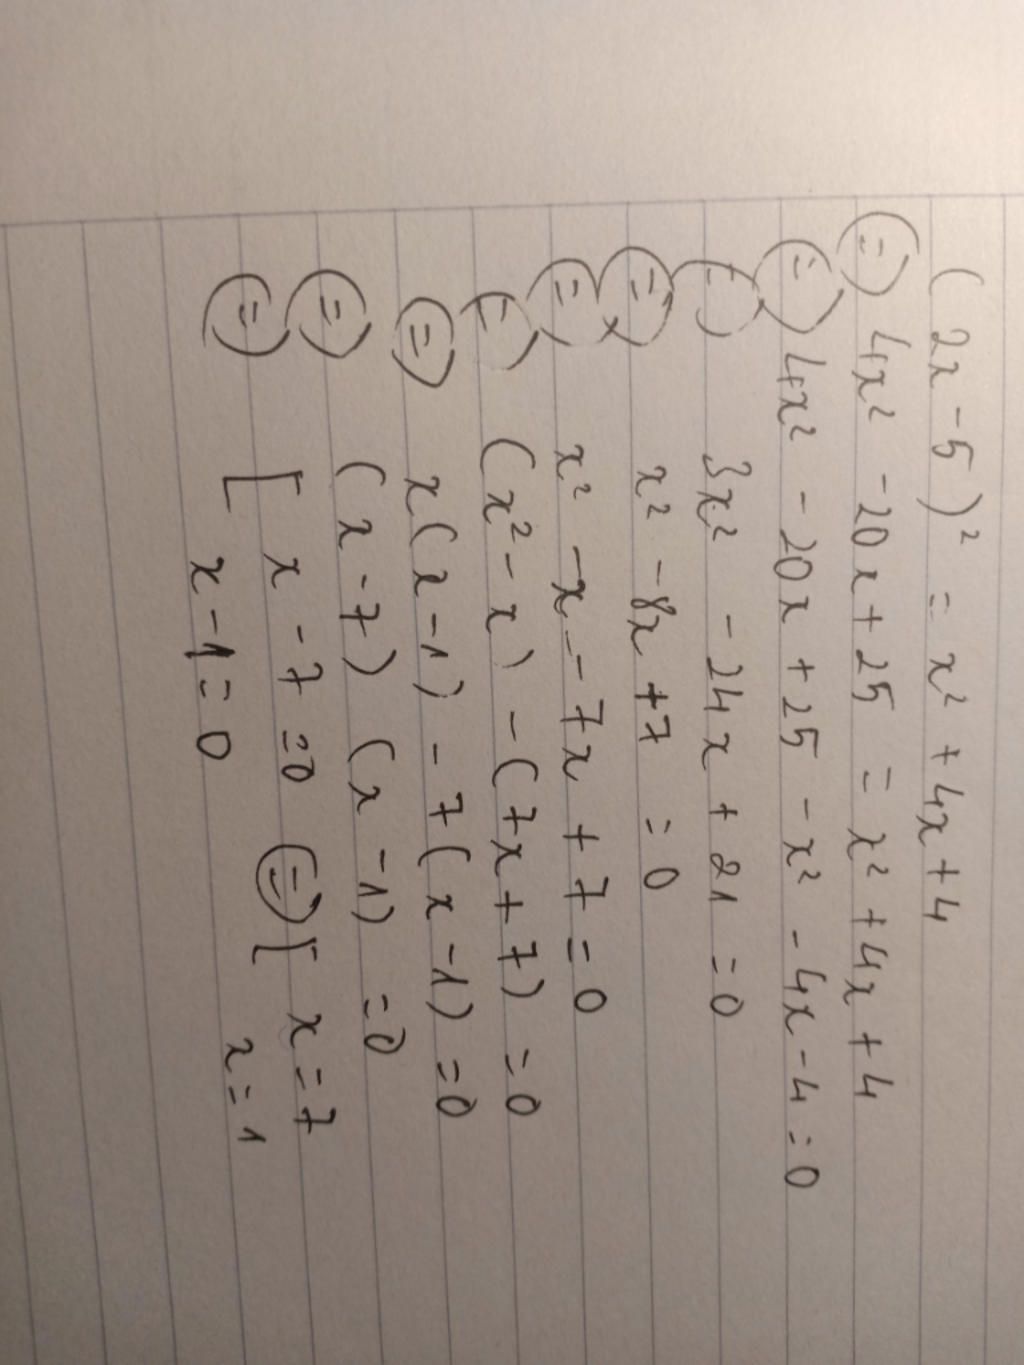 (2x-5)² = x² + 4x + 4
(=) 4x² - 20x + 25 = x² + 4x + 4
(=) 4x² - 20x + 25 - x² - 4x - 4 = 0
(=) 3x² - 24x + 21 = 0
(=) x² - 8x + 7 = 0
(=) x² - x - 7x + 7 = 0
(=) (x² - x) - (7x + 7) = 0
(=) x(x - 1) - 7(x - 1) = 0
(=) (x - 7) (x - 1) = 0
(=) [ x - 7 = 0 (=) [ x = 7
x - 1 = 0 x = 1